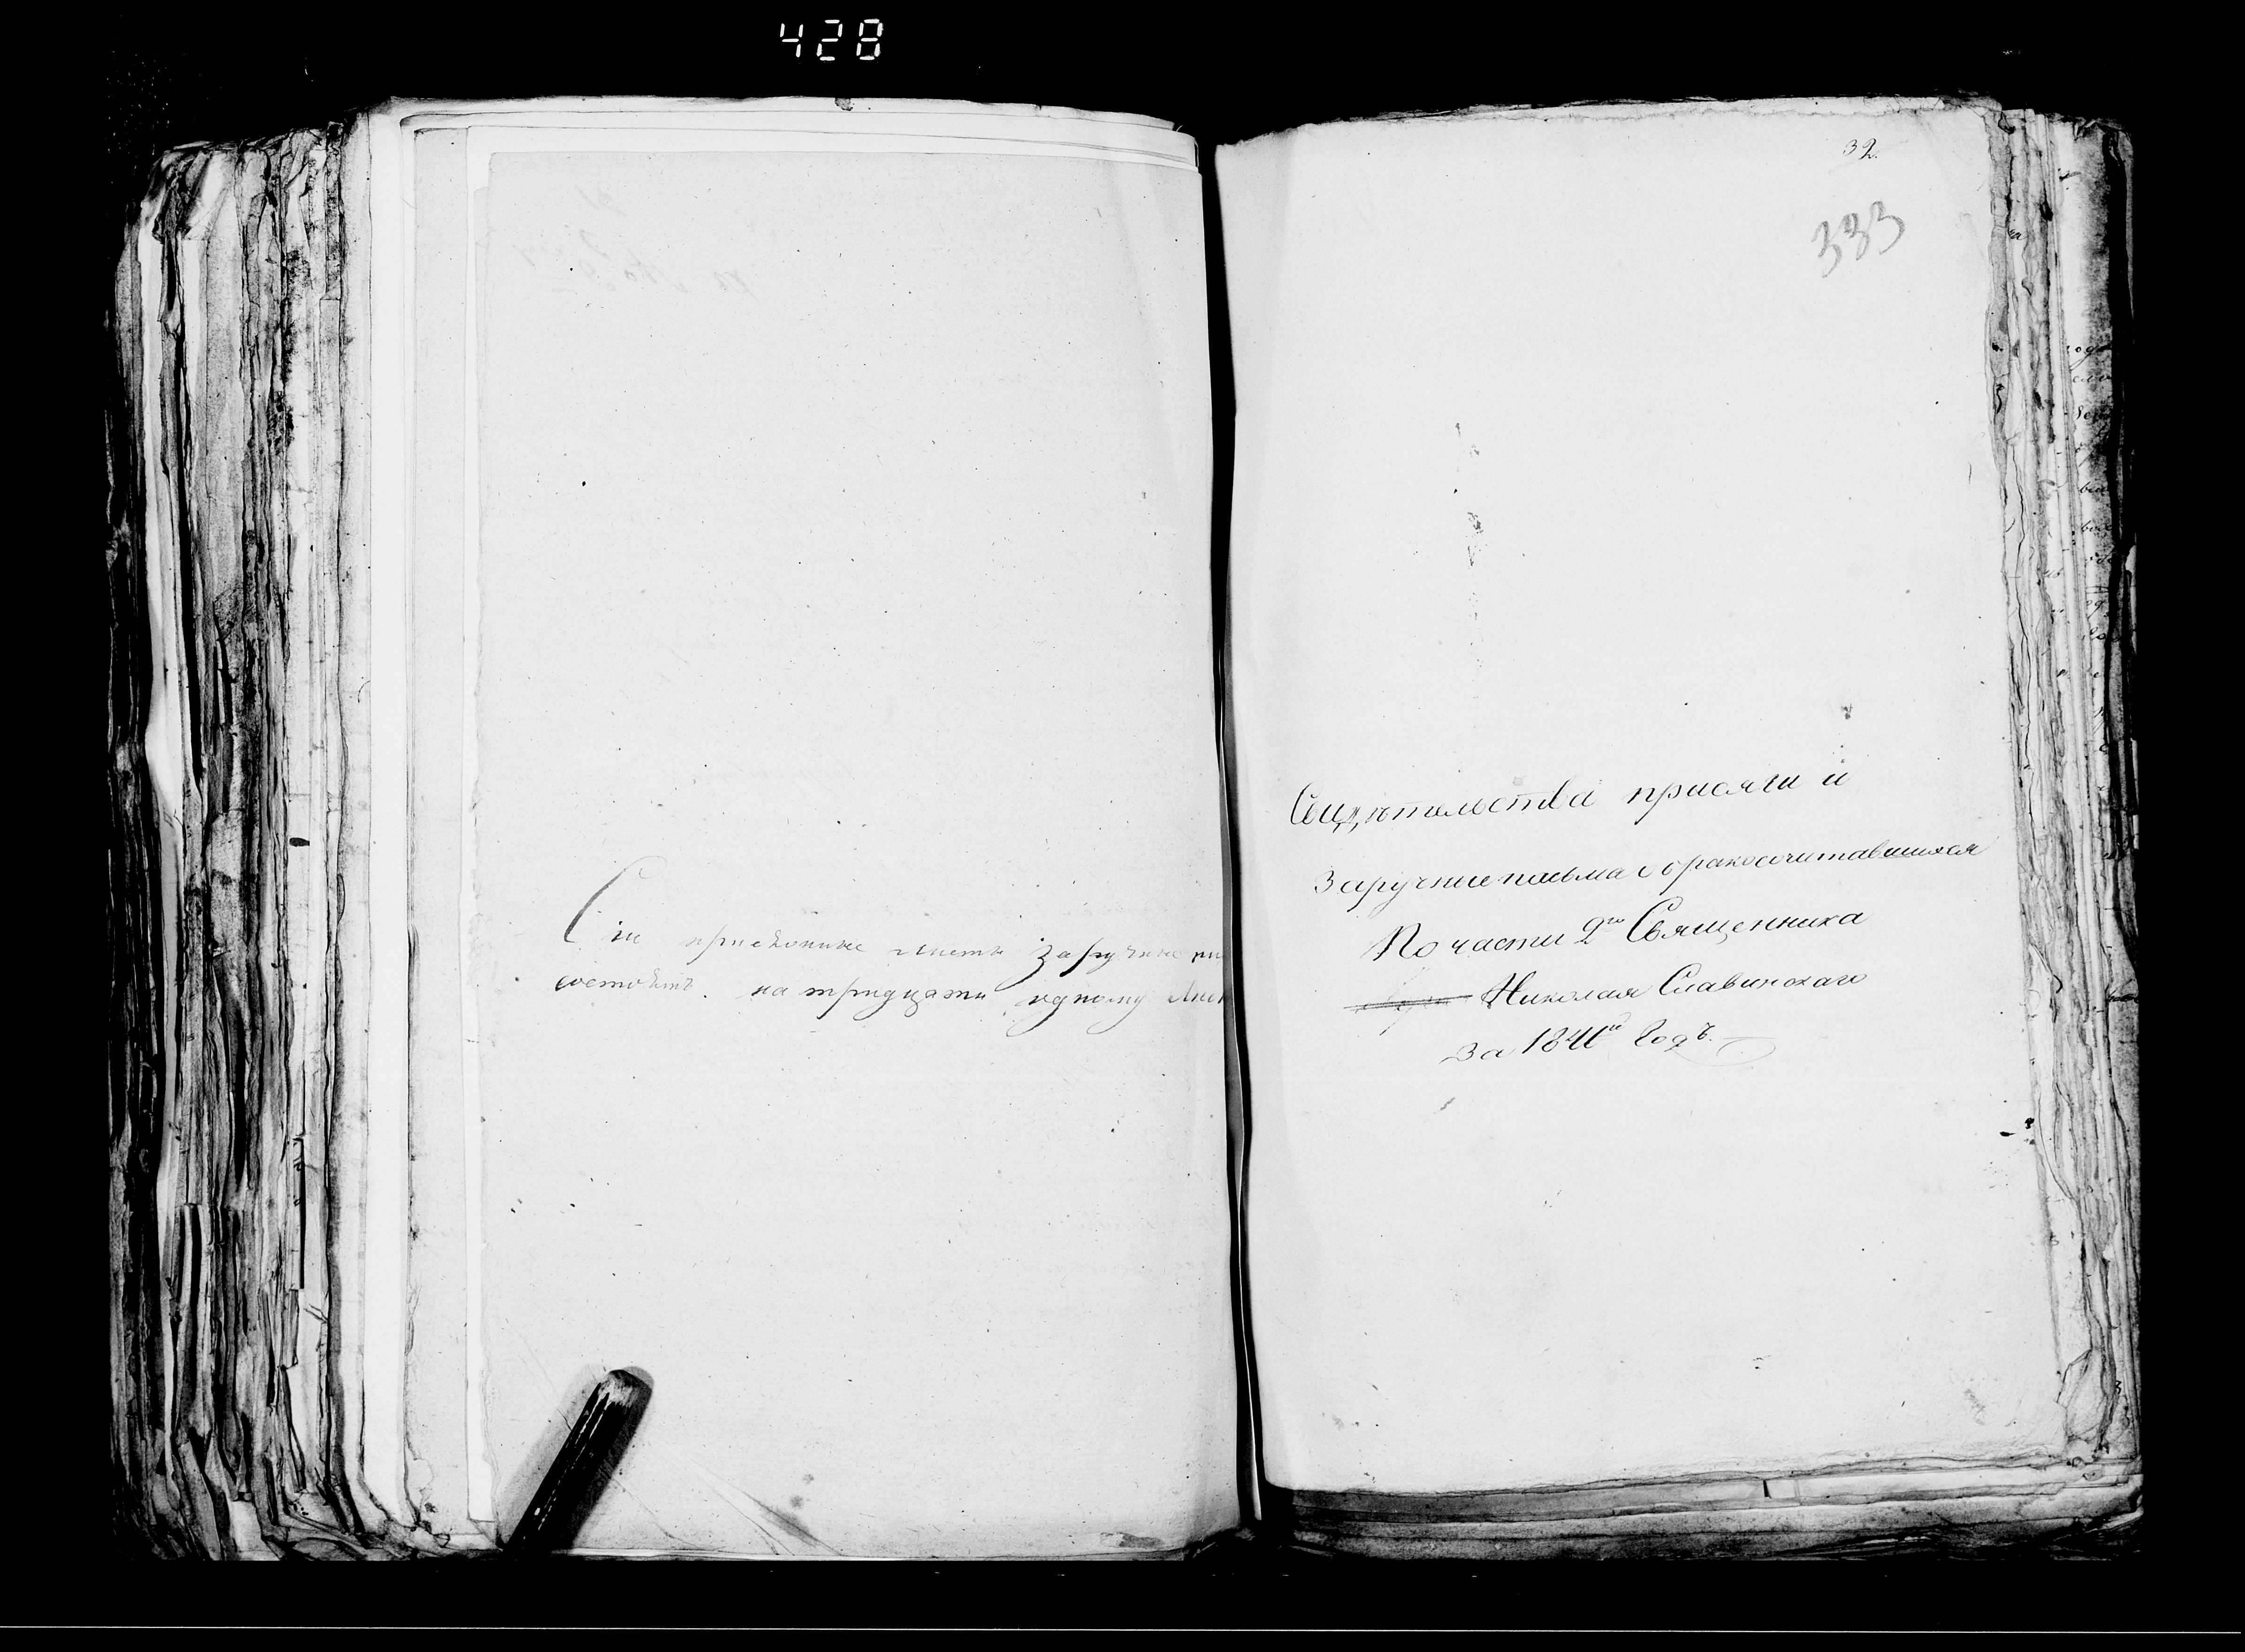 428
Сии присяжные листы заручные
состоятъ на тридцати одному
32.
333
Свидѣтельства присяги и
Заручные письма о бракосочитавшихся
По части 2го Священника
Николая Славинскаго
За 1841й Годъ.